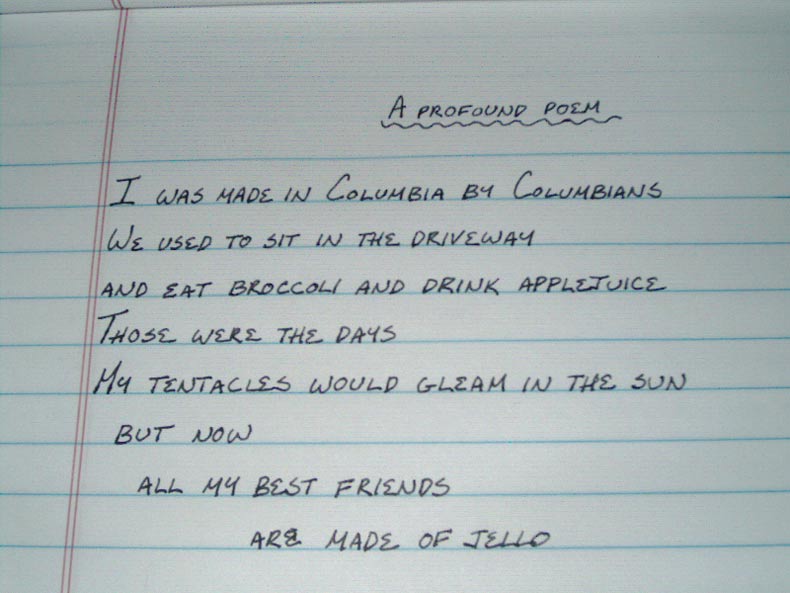 A PROFOUND POEM
I WAS MADE IN COLUMBIA BY COLUMBIANS
WE USED TO SIT IN THE DRIVEWAY
AND EAT BROCCOLI AND DRINK APPLEJUICE
THOSE WERE THE DAYS
MY TENTACLES WOULD GLEAM IN THE SUN
BUT NOW
ALL MY BEST FRIENDS
ARE MADE OF JELLO